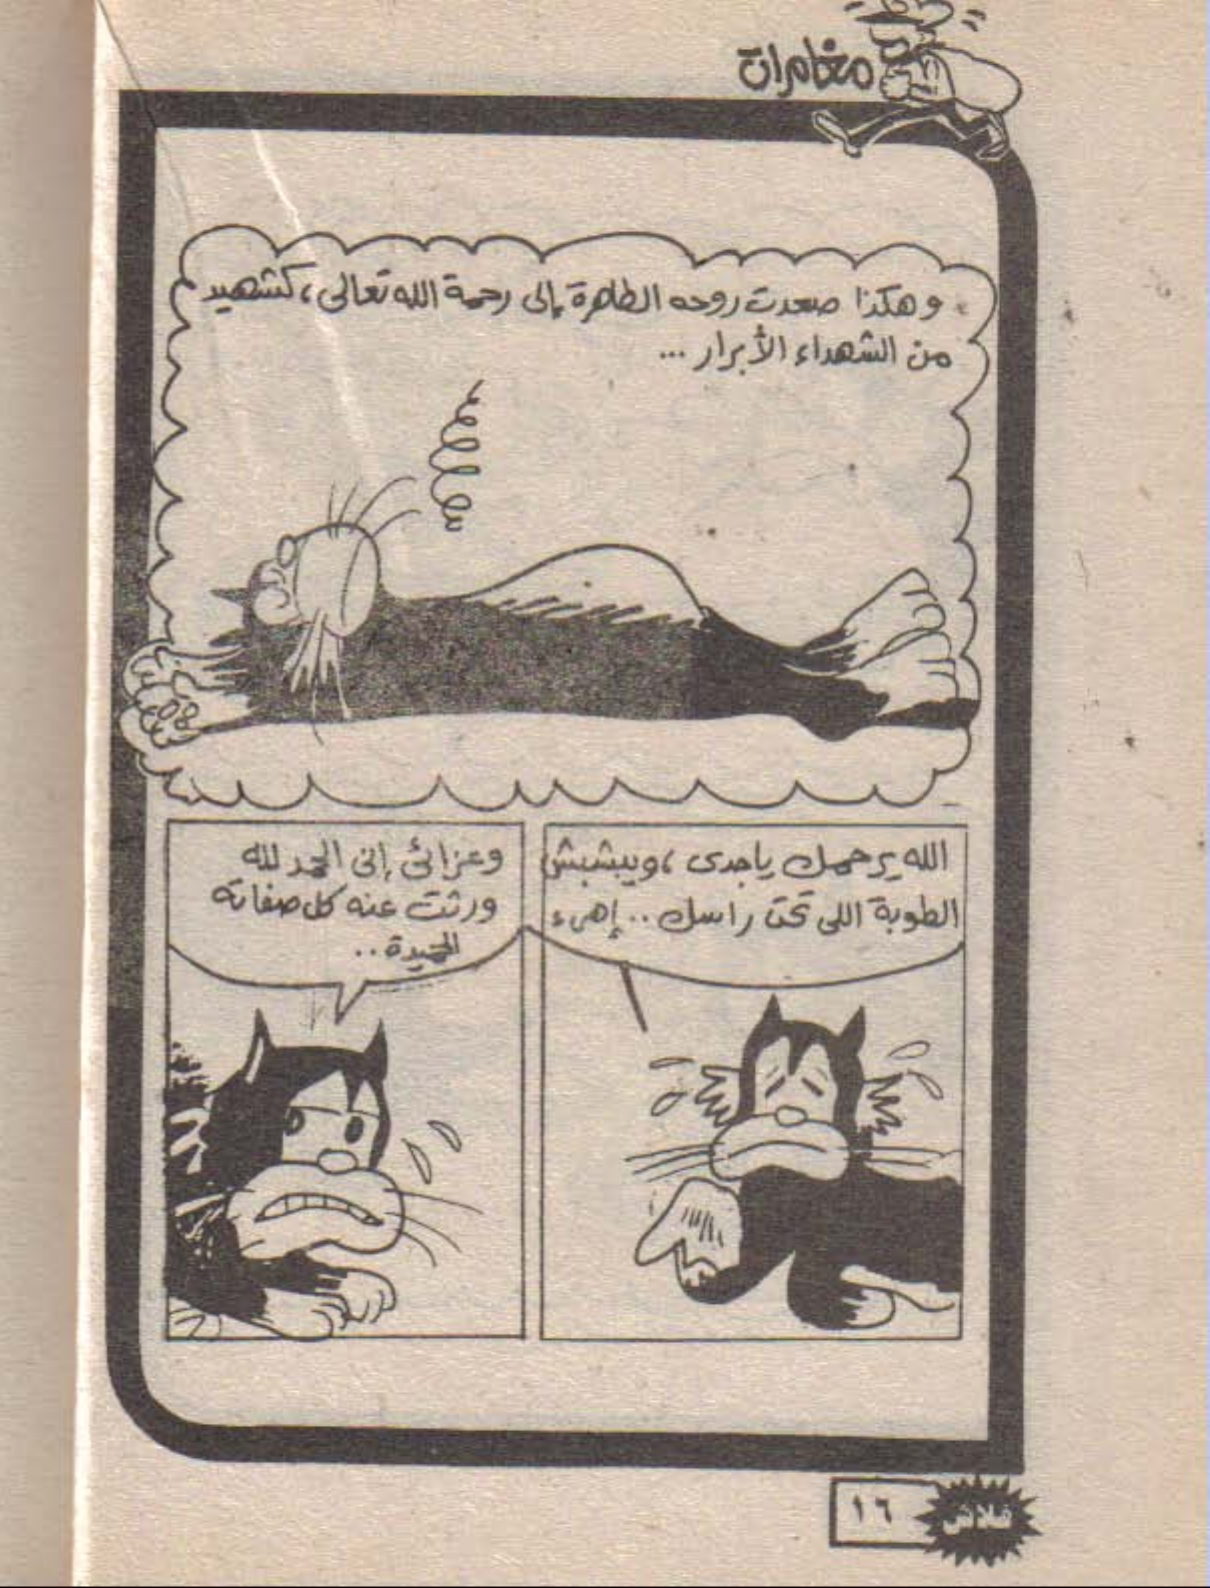 مغامرات
وهكذا صعدت روحه الطاهرة إلى رحمة الله تعالى، كشهيد
من الشهداء الأبرار ...
الله يرحمك ياجدى، ويبشبش
الطوبة اللى تحت راسك .. إهىء
وعزائى إنى الحمد لله
ورثت عنه كل صفاته
الحميدة ..
١٦
فلاش